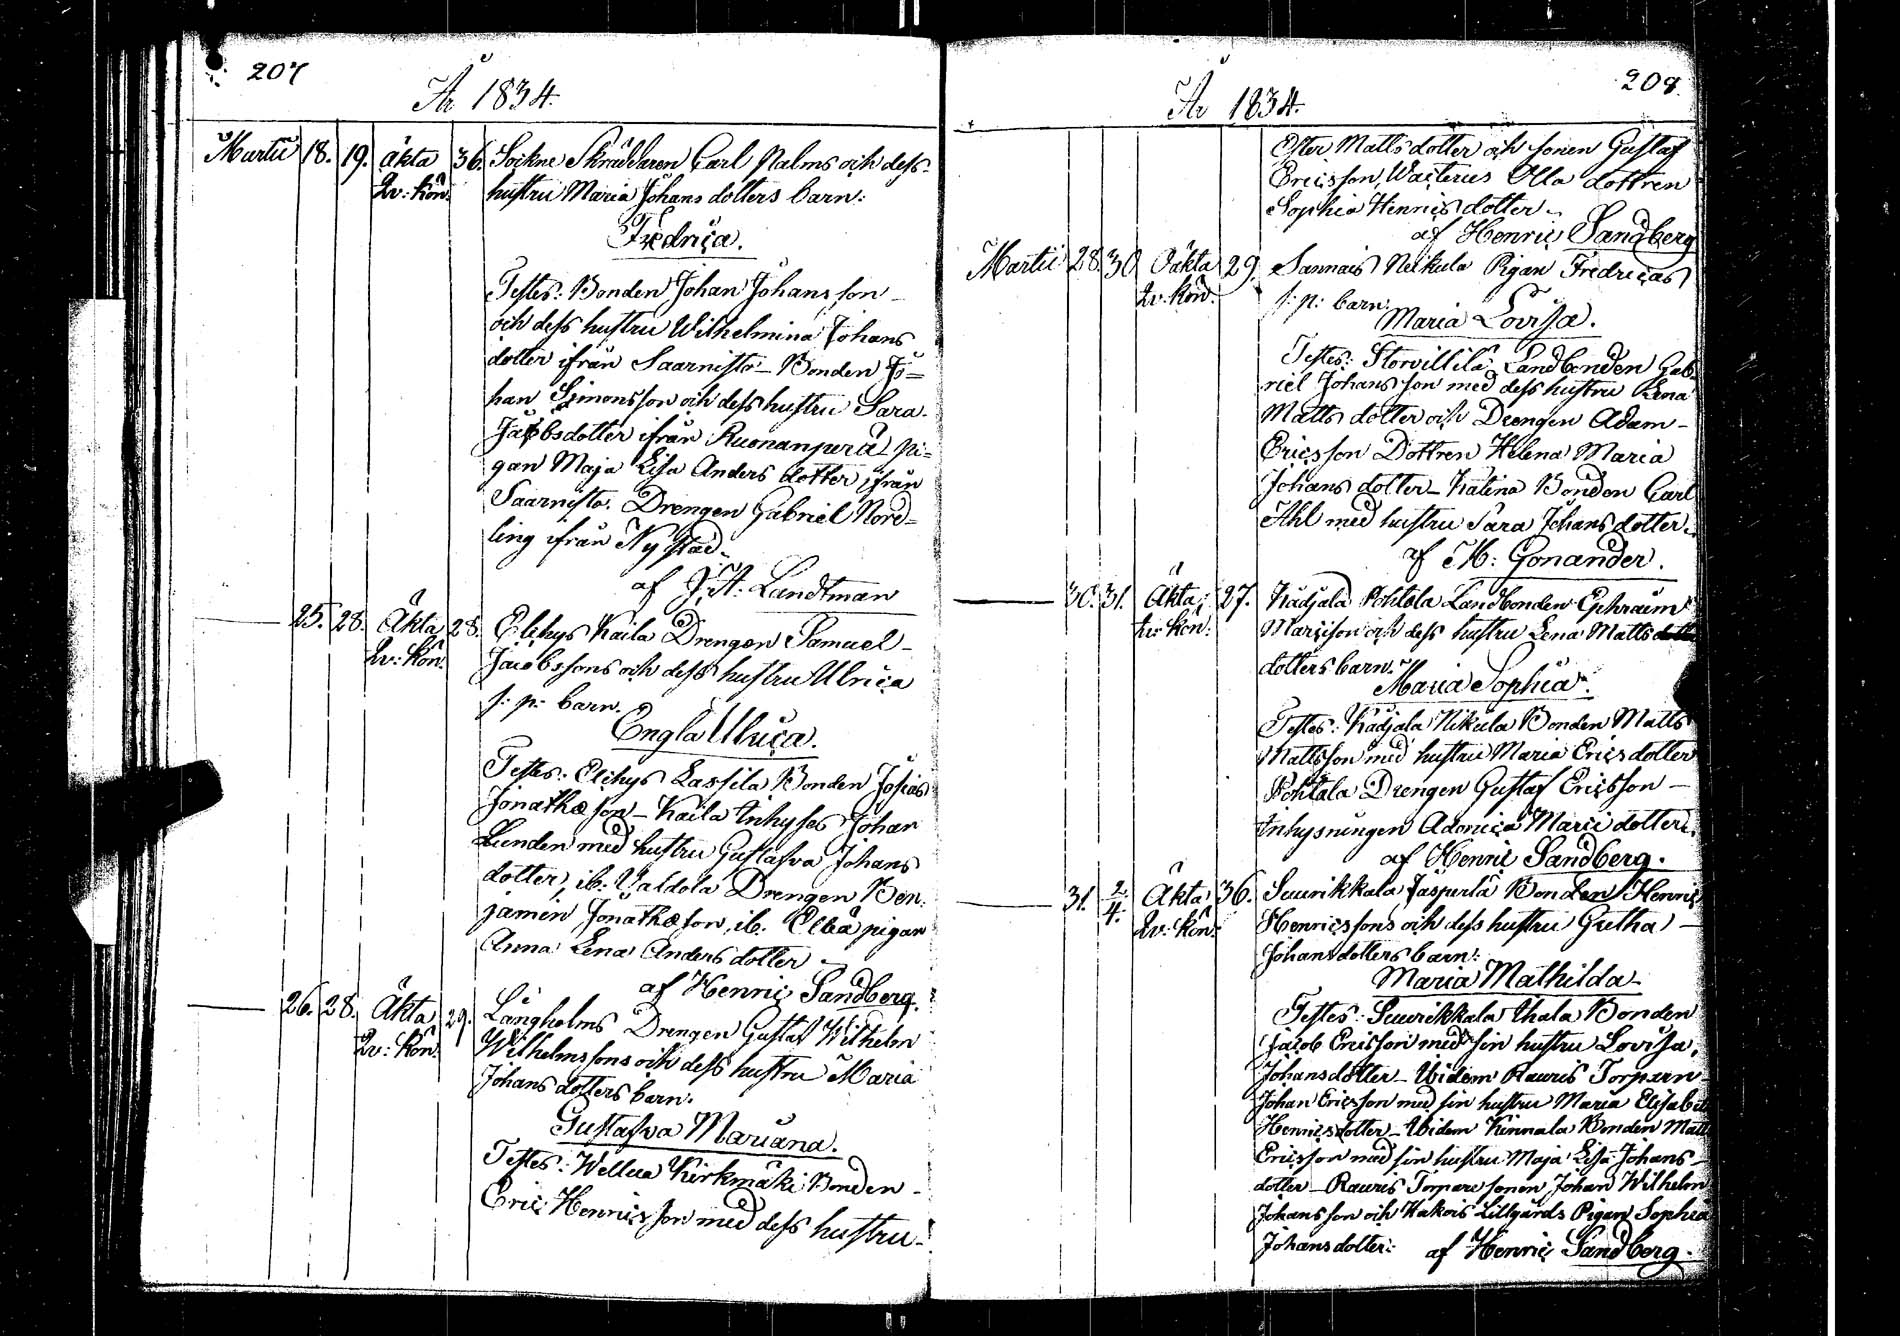 207
År 1834.
Martii 18. 19. äkta 36. Sockne Skräddaren Carl Palms och dess
Qv: kön. hustru Maria Johans dotters barn:
Fredrica.
Testes: Bonden Johan Johansson
och dess hustru Wilhelmina Johans
dotter ifrån Saarnisto – Bonden Jo=
han Simonsson och dess hustru Sara
Jacobsdotter ifrån Ruonanperä – Pi=
gan Maja Lisa Anders dotter ifrån
Saarnisto. Drengen Gabriel Nord=
ling ifrån Nystad.
af J. A. Landtman
25. 28. Äkta 28. Elchys Kaila Drengen Samuel
Qv: kön. Jacobssons och dess hustru Ulrica
s: p: barn.
Engla Ulrica.
Testes: Elchys Lassila Bonden Josias
Jonathæson – Kaila Inhyses Johan
Lunden med hustru Gustafva Johans
dotter, ib. Yaldola Drengen Ben:
jamin Jonathæson, ib. Elbä pigan
Anna Lena Anders dotter –
af Henric Sandberg.
26. 28. Äkta 29. Långholms Drengen Gustaf Wilhelm
Qv: kön. Wilhelmssons och dess hustru Maria
Johans dotters barn.
Gustafva Mariana.
Testes: Wellua Kirkmäki Bonden
Eric Henricsson med dess hustru
208.
År 1834.
Ester Matts dotter och sonen Gustaf
Ericsson, Ulla dottren
Sophia Henrics dotter –
af Henric Sandberg
Martii 28. 30. Oäkta 29. Sannais Neikula Pigan Fredricas
Qv: kön. s: p: barn.
Maria Lovisa.
Testes: Storvillilä Landbonden Gab=
riel Johansson med dess hustru Lena
Matts dotter och Drengen Adam
Ericsson Dottren Helena Maria
Johans dotter – Katina Bonden Carl
Ahl med hustru Sara Johans dotter.
af H: Gonander.
30. 31. Äkta 27. Kädjälä Pohtola Landbonden Ephraim
Qv: kön: Marcison och dess hustru Lena Matts
dotters barn.
Maria Sophia.
Testes: Kädjälä Nikula Bonden Matts
Mattsson med hustru Maria Erics dotter
Pohtola Drengen Gustaf Ericsson –
Inhysningen Adonica Marci dotter.
af Henric Sandberg.
31. 2/4. Äkta 36. Suurikkala Jasperlä Bonden Henric
Qv: kön: Henricssons och dess hustru Gretha
Johansdotters barn:
Maria Mathilda
Testes: Suurikkala Uhala Bonden
Jacob Ericsson med sin hustru Lovisa,
Johansdotter – Ibidem Rauris Torparn
Johan Ericsson med sin hustru Maria Elisabet
Henricsdotter – Ibidem Kinnala Bonden Matts
Ericsson med sin hustru Maja Lisa Johans
dotter – Rauris Torpare sonen Johan Wilhelm
Johansson och Kakois Lillgårds Pigan Sophia
Johansdotter: af Henric Sandberg.